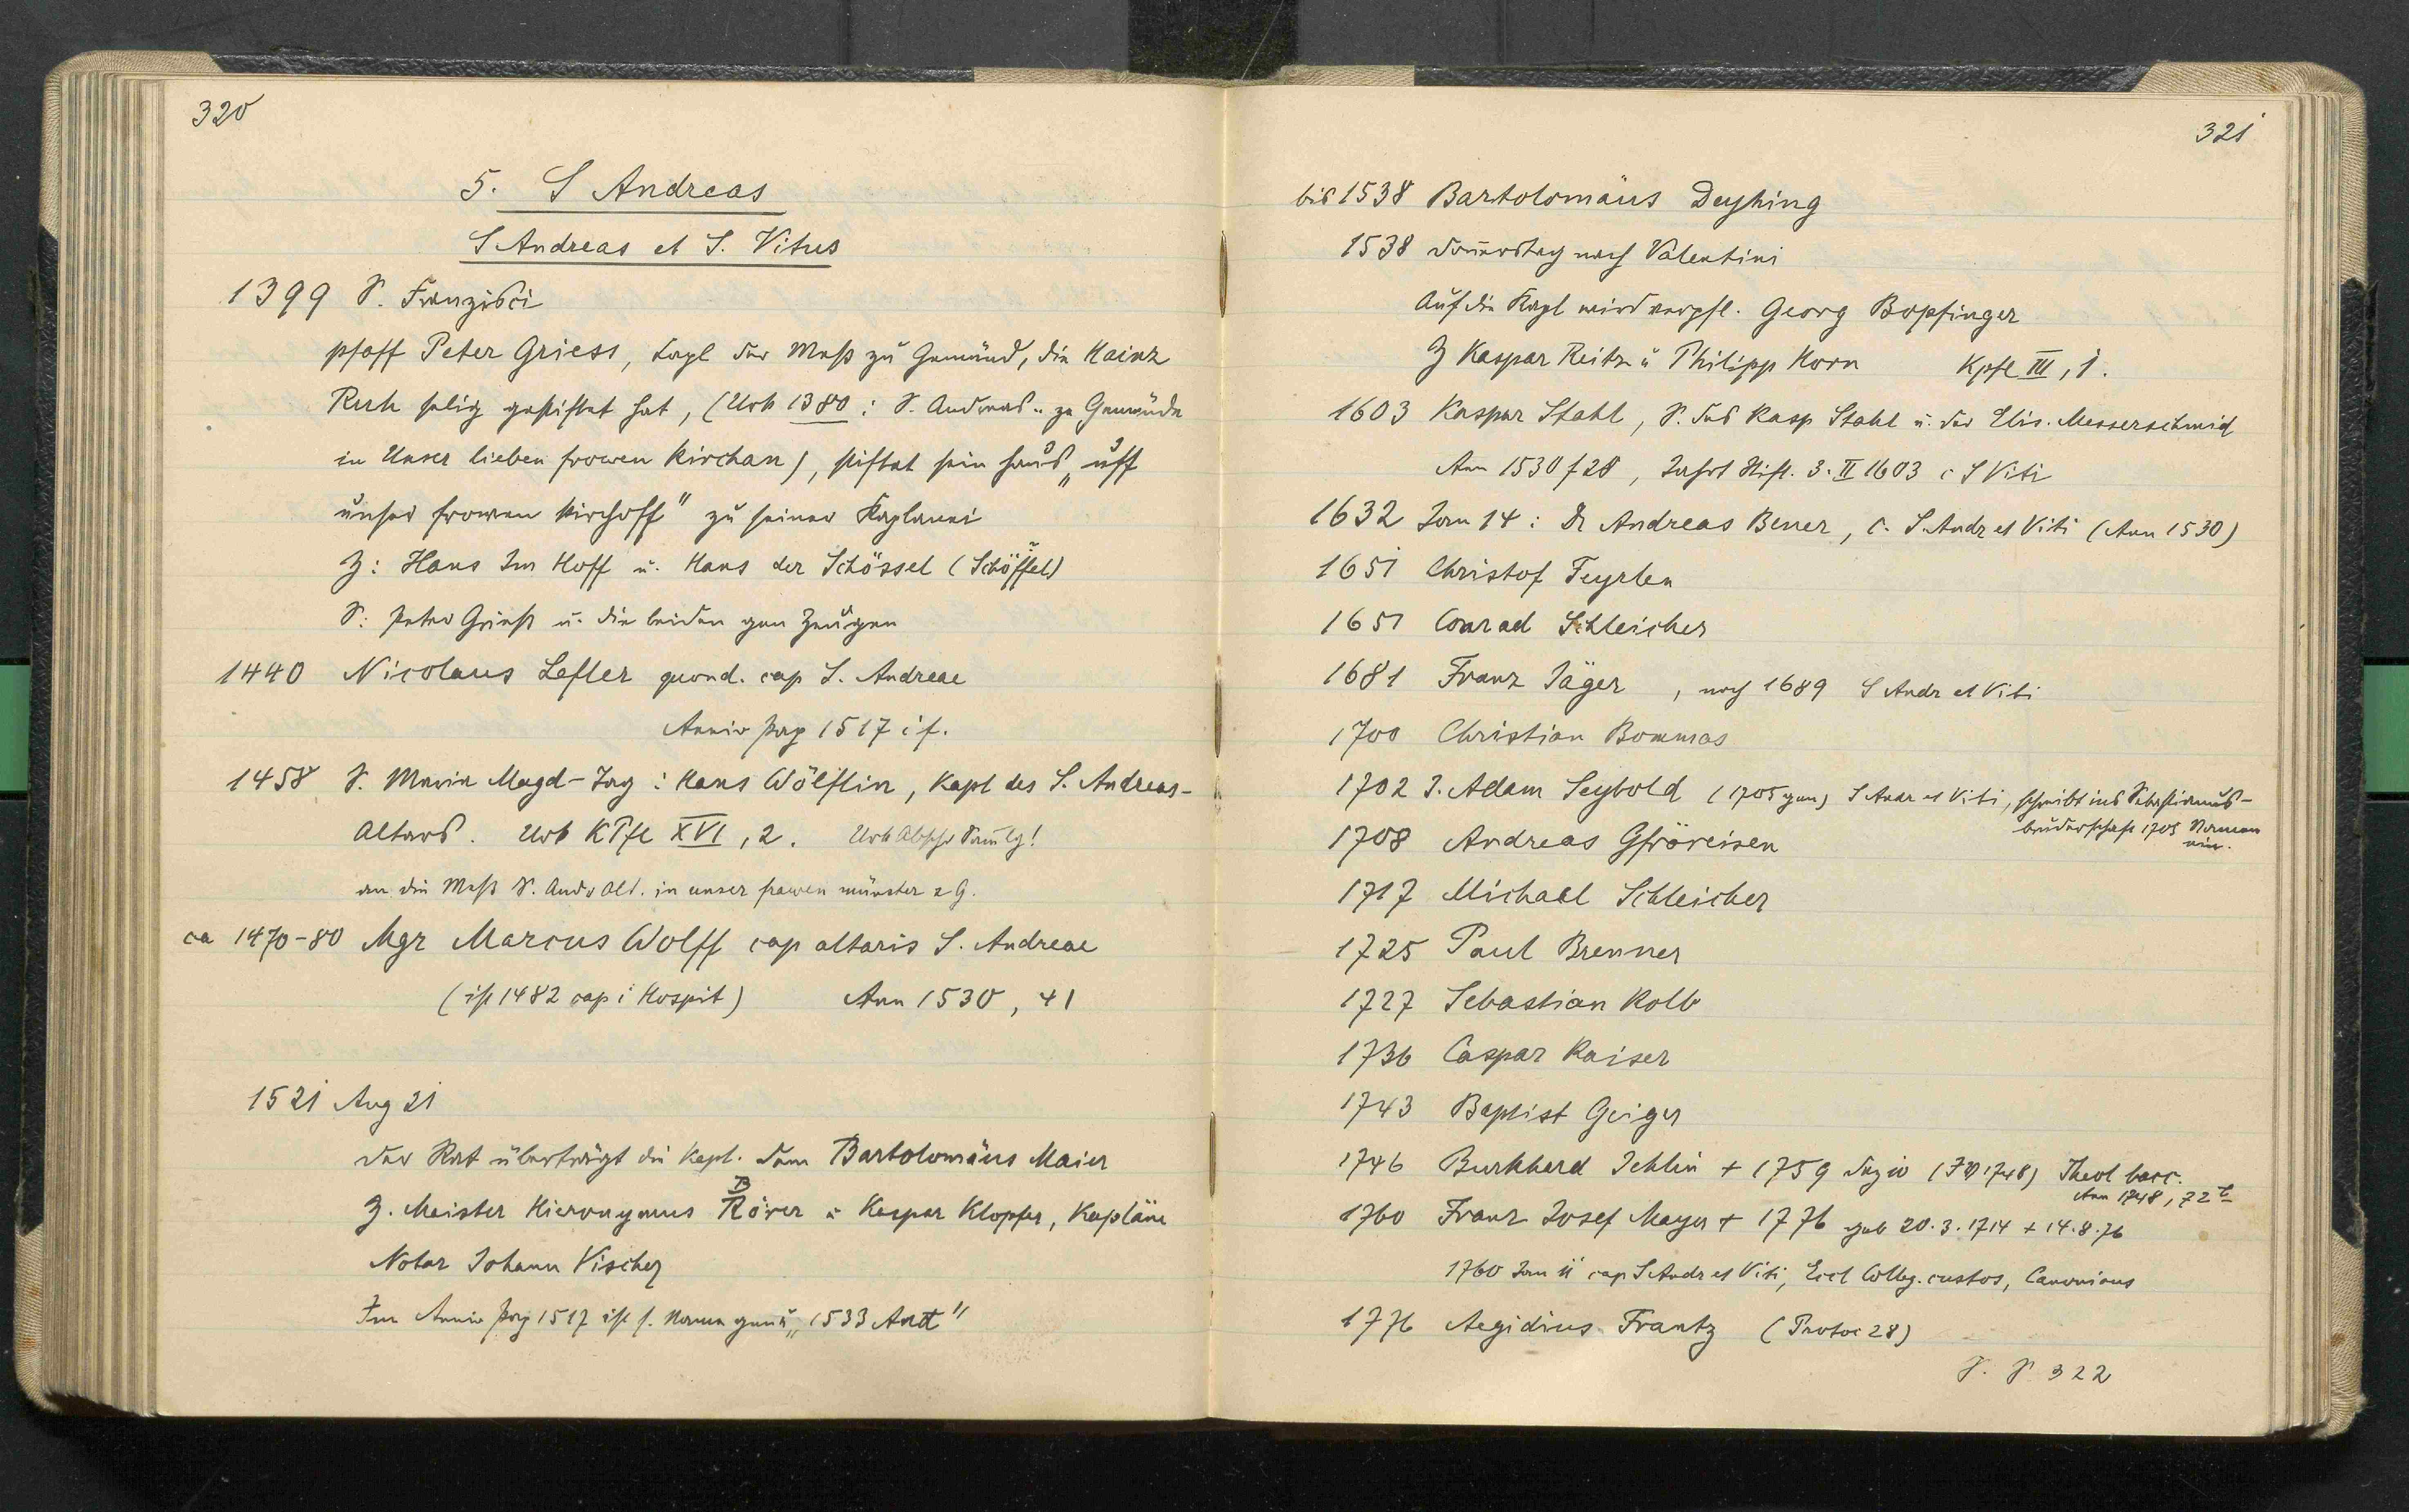 320
5. S Andreas
S Andreas et S. Vitus
1399 S. Franzisci
pfaff Peter Griess, kapl der Meß zu Gemünd, die Hainz
Ruh selig gestiftet hat, (Urk 1380: S. Andreas .. ze Gemünde
in Unser lieben frowen kirchan), stiftet sein haus „uff
unser frowen kirchoff" zu seiner Kaplanei
Z: Hans Im Hoff u. Hans der Schössel (Schöffel)
S: Peter Grieß u. die beiden gen Zeugen
1440 Nicolaus Lefler quond. cap S. Andreae
Anniv perg 1517 i f.
1458 S. Maria Magd-Tag: Hans Wölflin, Kapl des S. Andreas-
Altars. Urk KPfl XVI, 2. Urk Abschr Samlg!
an die Meß S. Andr Alt. in unser frawen münster z G.
ca 1470-80 Mgr Marcus Wolff cap altaris S. Andreae
(ist 1482 cap i Hospit) Ann 1530, 41
1521 Aug 21
Der Rat überträgt die Kapl. dem Bartolomäus Maier
Z. Meister Hieronymus Röver u Kaspar Klopfer, Kapläne
B
Notar Johann Vischer
Im Anniv perg 1517 ist s. Name gen u „1533
321
bis 1538 Bartolomäus Deyhing
1538 Donnerstag nach Valentini
Auf die Kapl wird verpfl. Georg Bopfinger
Z Kaspar Reitz u Philipp Horn Kpfl III, 1.
1603 Kaspar Stahl, S. des Kasp Stahl u. der Elis. Messerschmid
Ann 1530 f 28, Jahrt Stift. 3. II 1603 c S Viti
1632 Jan 14: Dr Andreas Bener, c. S. Andr et Viti (Ann 1530)
1651 Christof Feyrlen
1651 Conrad Schleicher
1681 Franz Jäger, noch 1689 S Andr et Viti
1700 Christian Bommas
1702 J. Adam Seybold (1705 gen) S Andr et Viti, schreibt ins Sebastianus-
bruderschaft 1705 Namen
ein.
1708 Andreas Gfröreisen
1717 Michael Schleicher
1725 Paul Brenner
1727 Sebastian Kolb
1736 Caspar Kaiser
1743 Baptist Geiger
1746 Burkhard Jehlin + 1759 Theol bacc.
Ann 1748, 72
1760 Franz Josef Mayer + 1776 geb 20.3.1714 + 14.8.76
1760 Jan 11 cap S Andr et Viti, Eccl Colleg. custos, Canonicus
1776 Aegidius Frantz (Protoc 28)
S. S 322